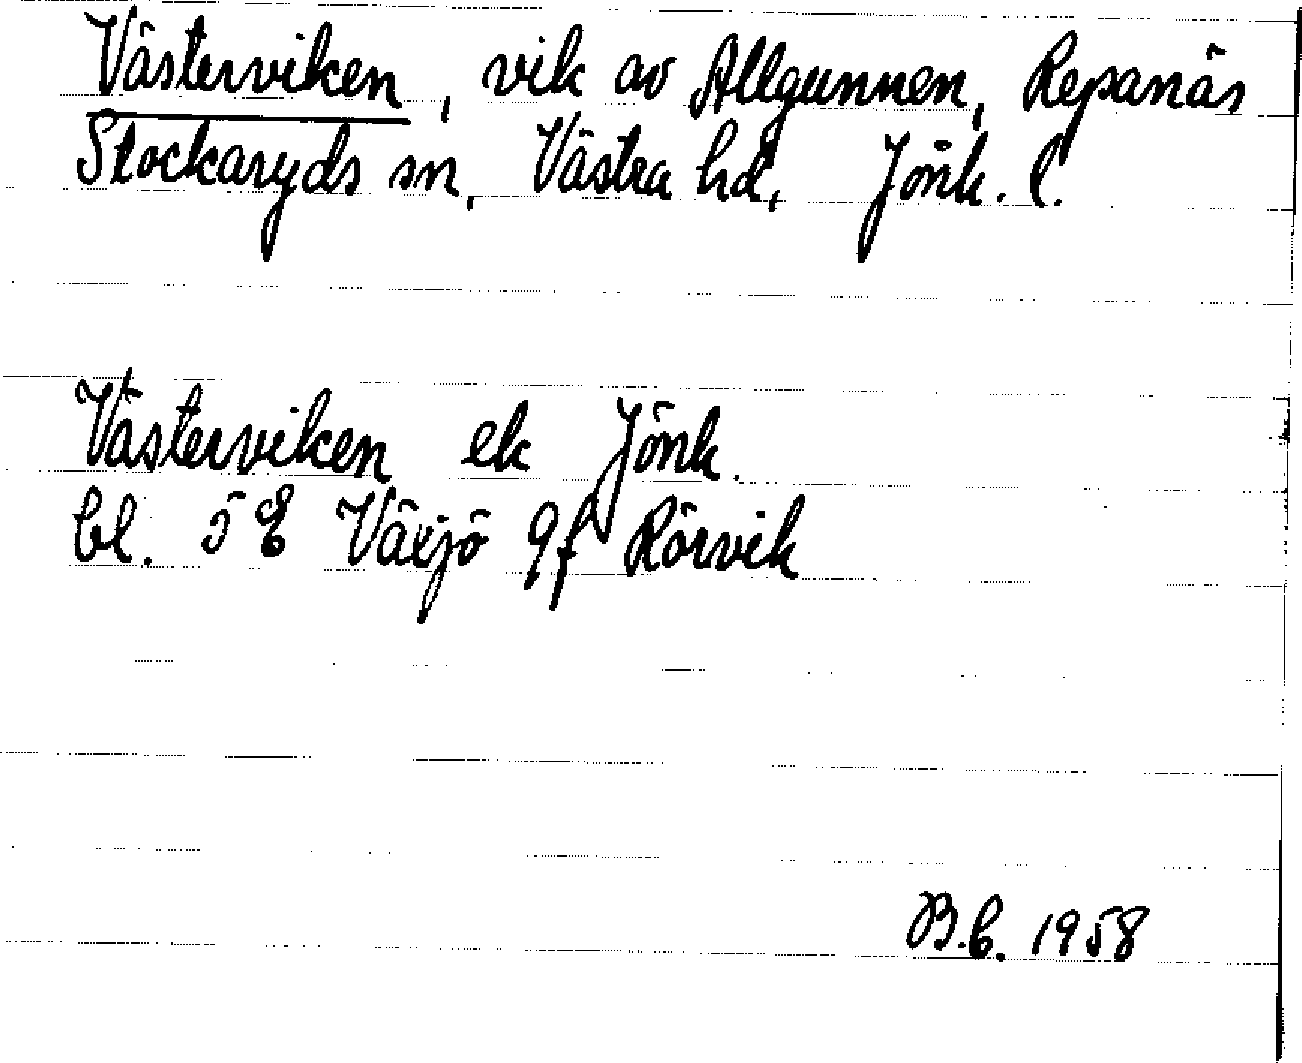 Västerviken, vik av Allgunnen, Repanäs
Stockaryds sn, Västra hd, Jönk. l.
Västerviken ek Jönk.
bl. 5 E Växjö 9f Rörvik
B.b. 1958